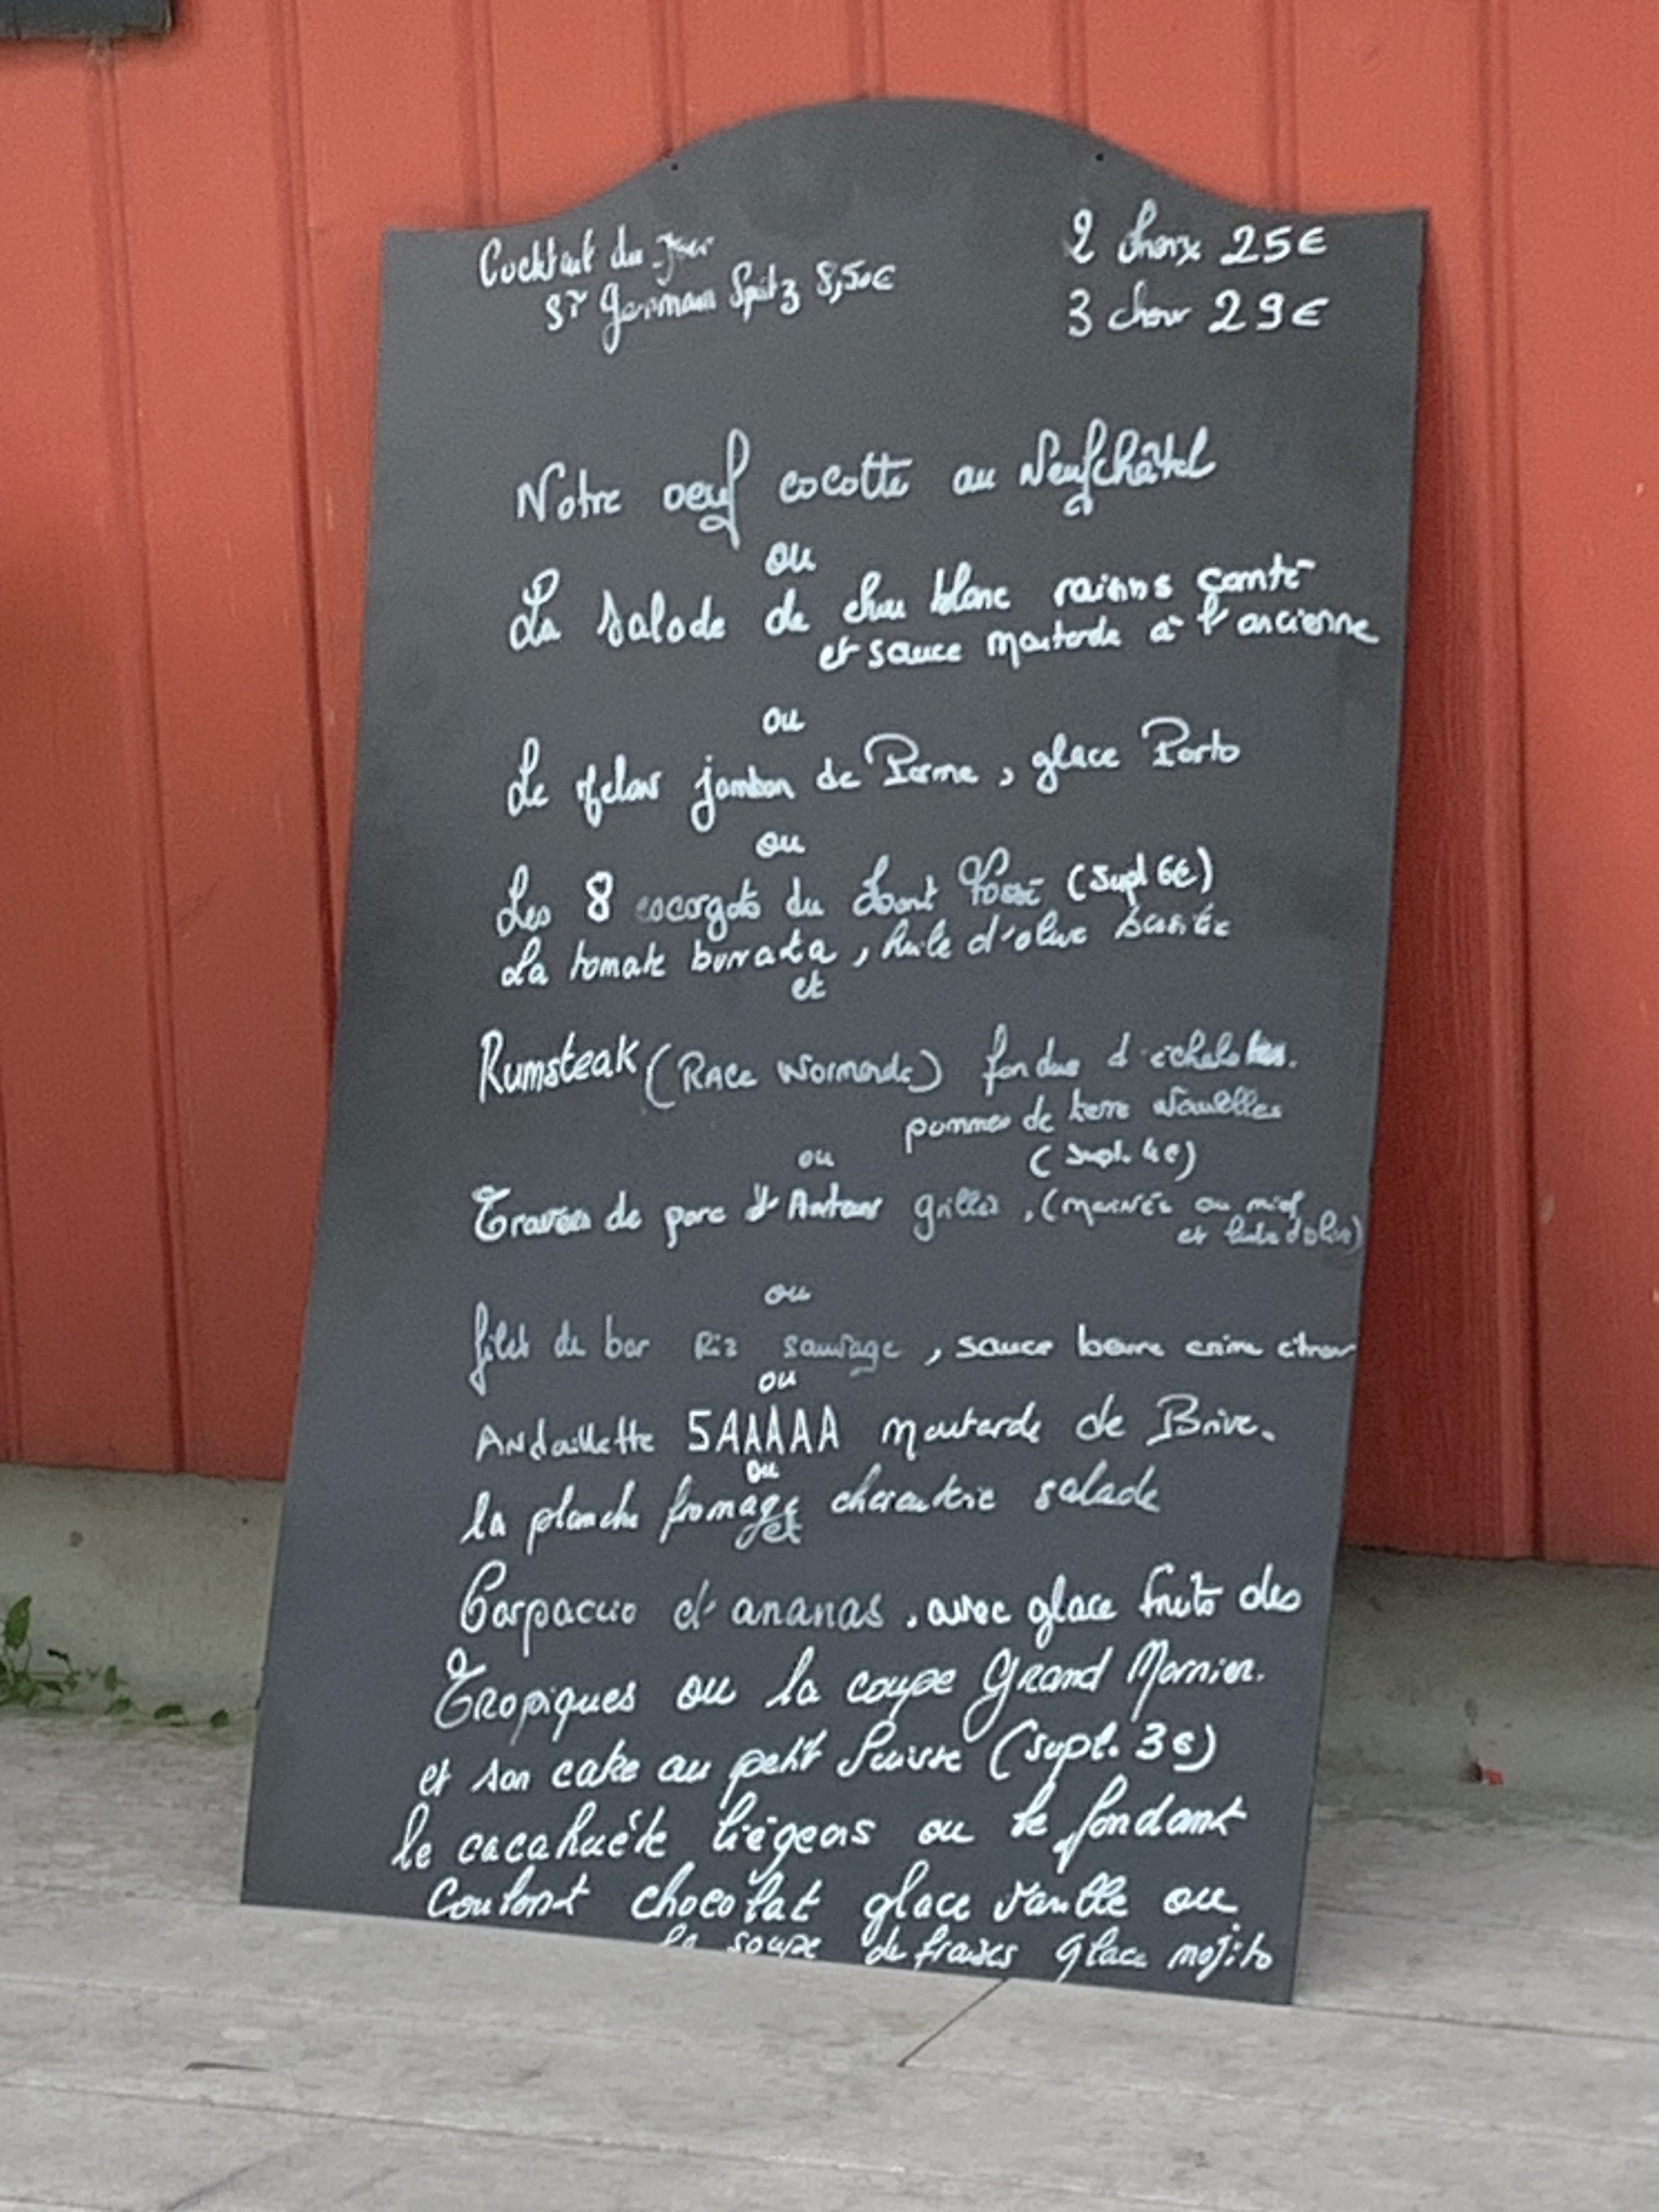 Cocktail du jour
St Germain Spritz 8,50€
2 choix 25€
3 choix 29€
Notre oeuf cocotte au Neufchâtel
ou
La salade de chou blanc raisins comté
et sauce moutarde à l'ancienne
ou
Le Melon jambon de Parme, glace Porto
ou
Les 8 escargots du (Supl 6€)
La tomate burrata, huile d'olive
et
Rumsteak (Race Normande) fondue d'échalotes.
pommes de terre Nouvelles
(supl. 4€)
ou
Travers de porc d'Antan grillés, (marinés au miel
et huile d'olive)
ou
filet de bar Riz sauvage, sauce beurre crème citron
ou
Andouillette 5AAAAA moutarde de Brive.
ou
la planche fromage charcuterie salade
et
Carpaccio d'ananas, avec glace fruits des
Tropiques ou la coupe Grand Marnier.
et son cake au petit Suisse (supl. 3€)
le cacahuète liégeois ou le fondant
Coulant chocolat glace vanille ou
la soupe de fraises glace mojito